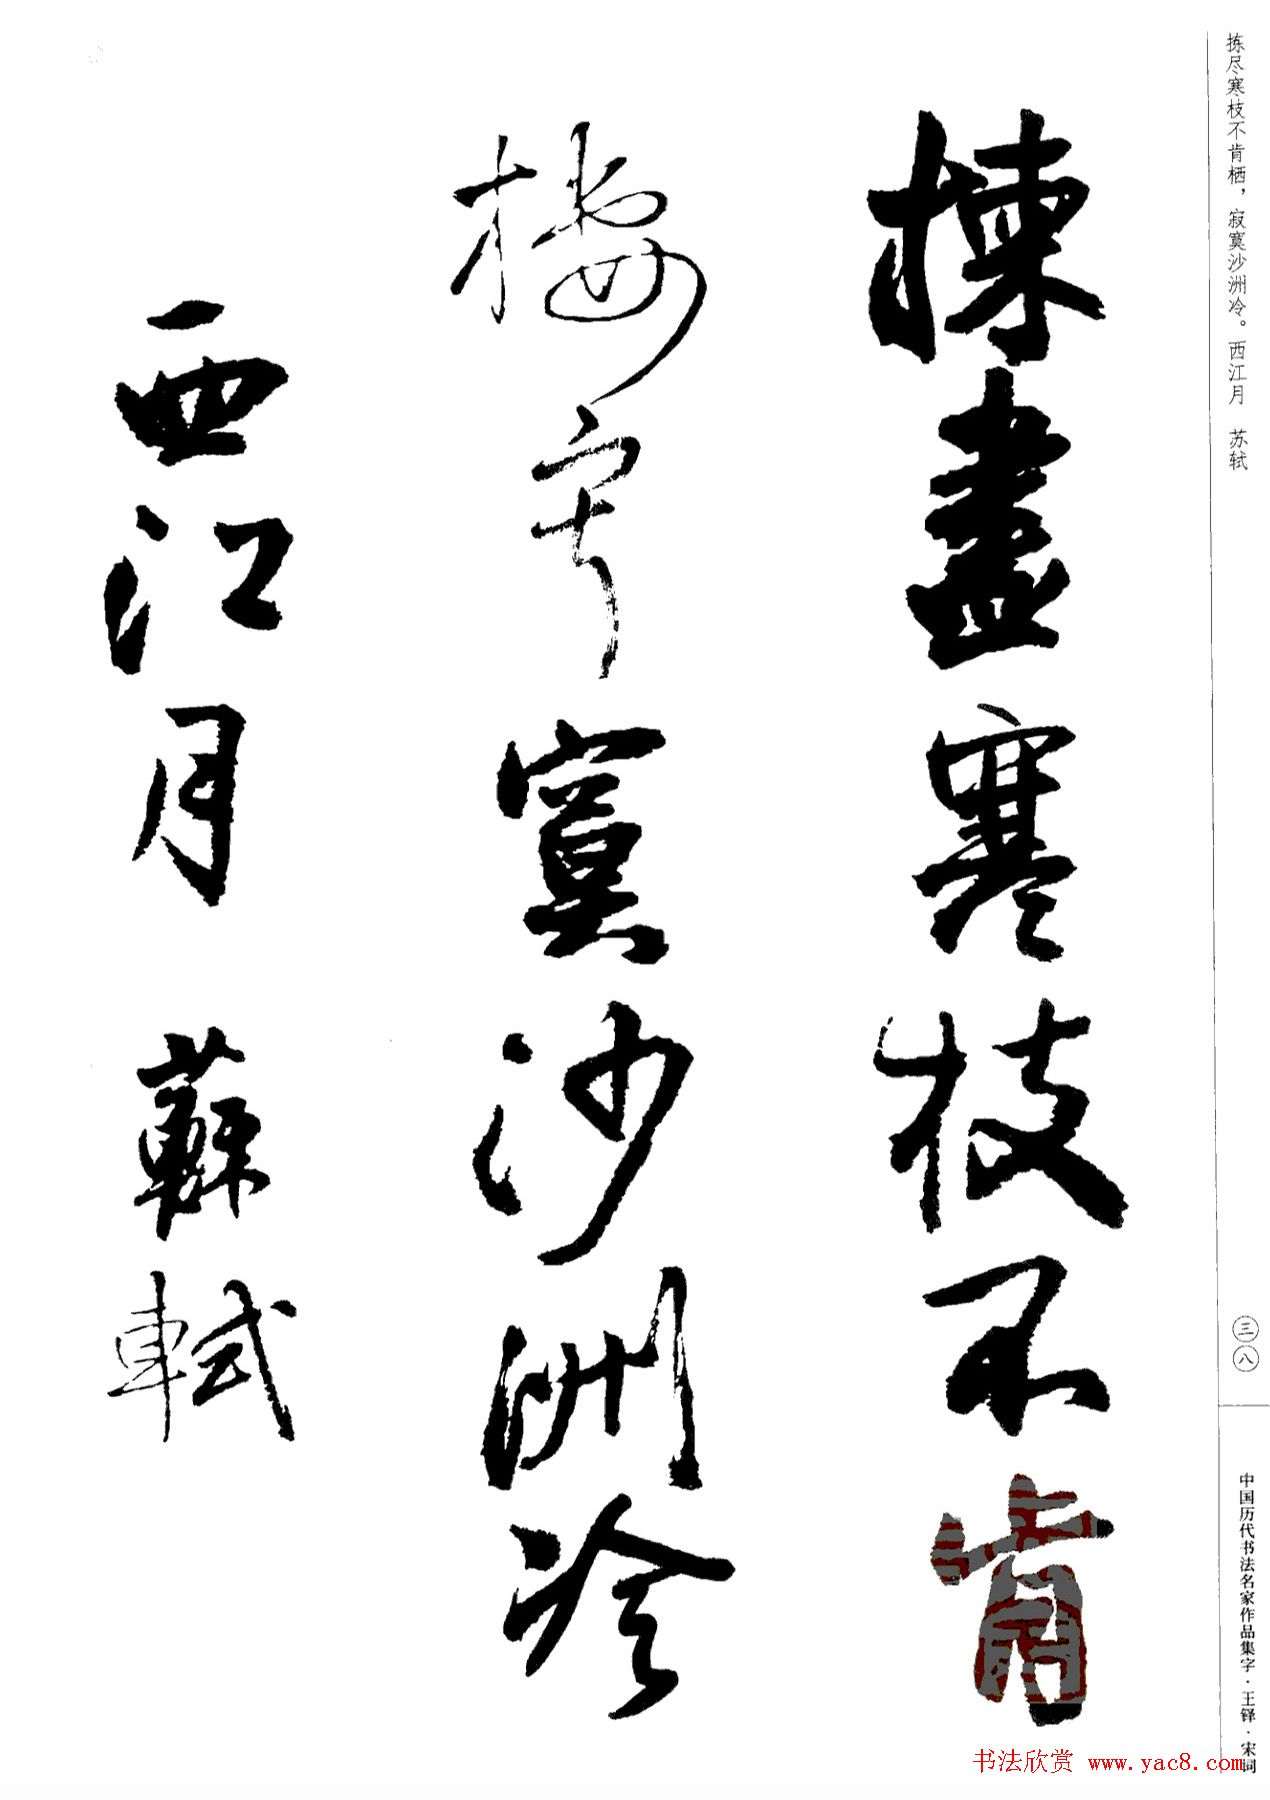 拣尽寒枝不肯栖，寂寞沙洲冷。西江月 苏轼
揀盡寒枝不肯
棲宁寞沙洲冷
西江月 蘇軾
三八
中国历代书法名家作品集字·王铎·宋词
书法欣赏 www.yac8.com